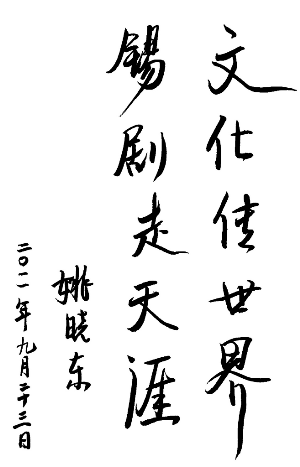 文化世界
锡剧走天涯
姚晓东
二〇一一年九月二十三日